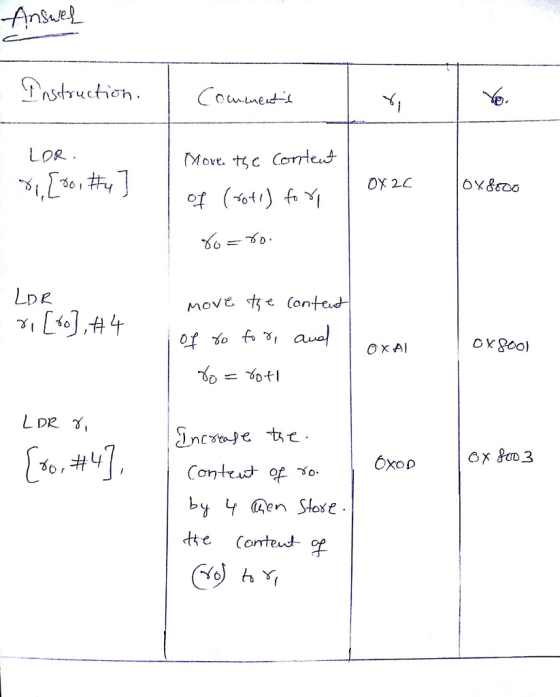 Answer
Instruction. Comments r1 r0.
LDR.
r1,[r0,#4]
Move the content
of (r0+1) to r1
r0=r0.
0X2C
0X8000
LDR
r1[r0],#4
move the content
of r0 to r1 and
r0=r0+1
0XA1
0X8001
LDR r1
[r0,#4],
Increase the.
content of r0.
by 4 then store.
the content of
(r0) to r1
0X0D
0X8003